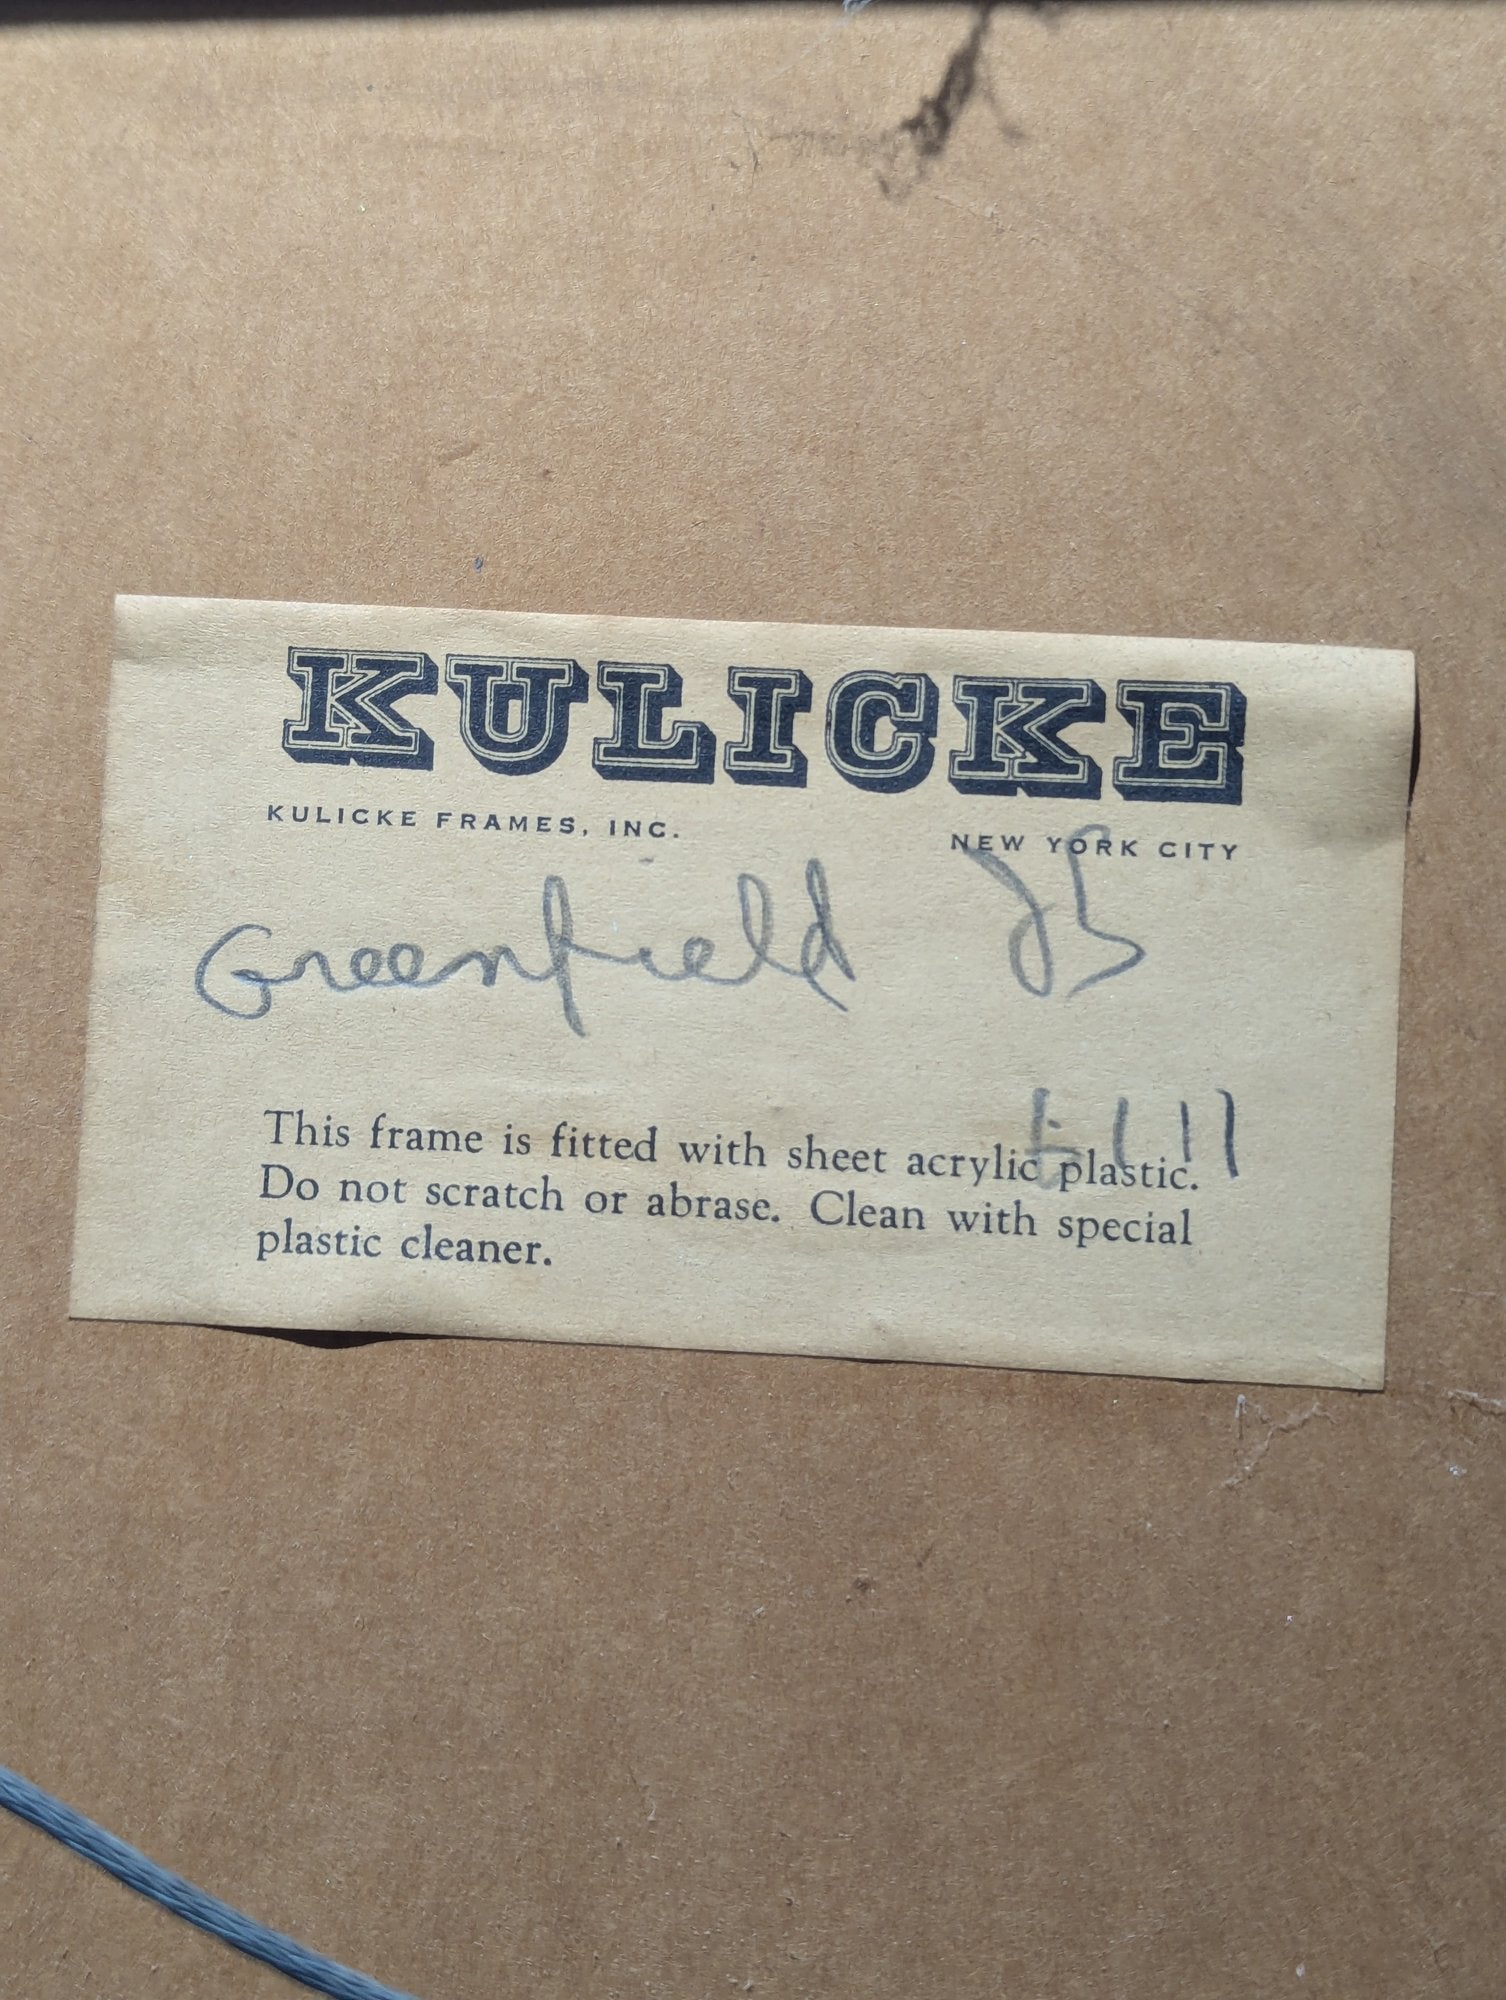 KULICKE
KULICKE FRAMES, INC. NEW YORK CITY
Greenfield
This frame is fitted with sheet acrylic plastic.
Do not scratch or abrase. Clean with special
plastic cleaner.